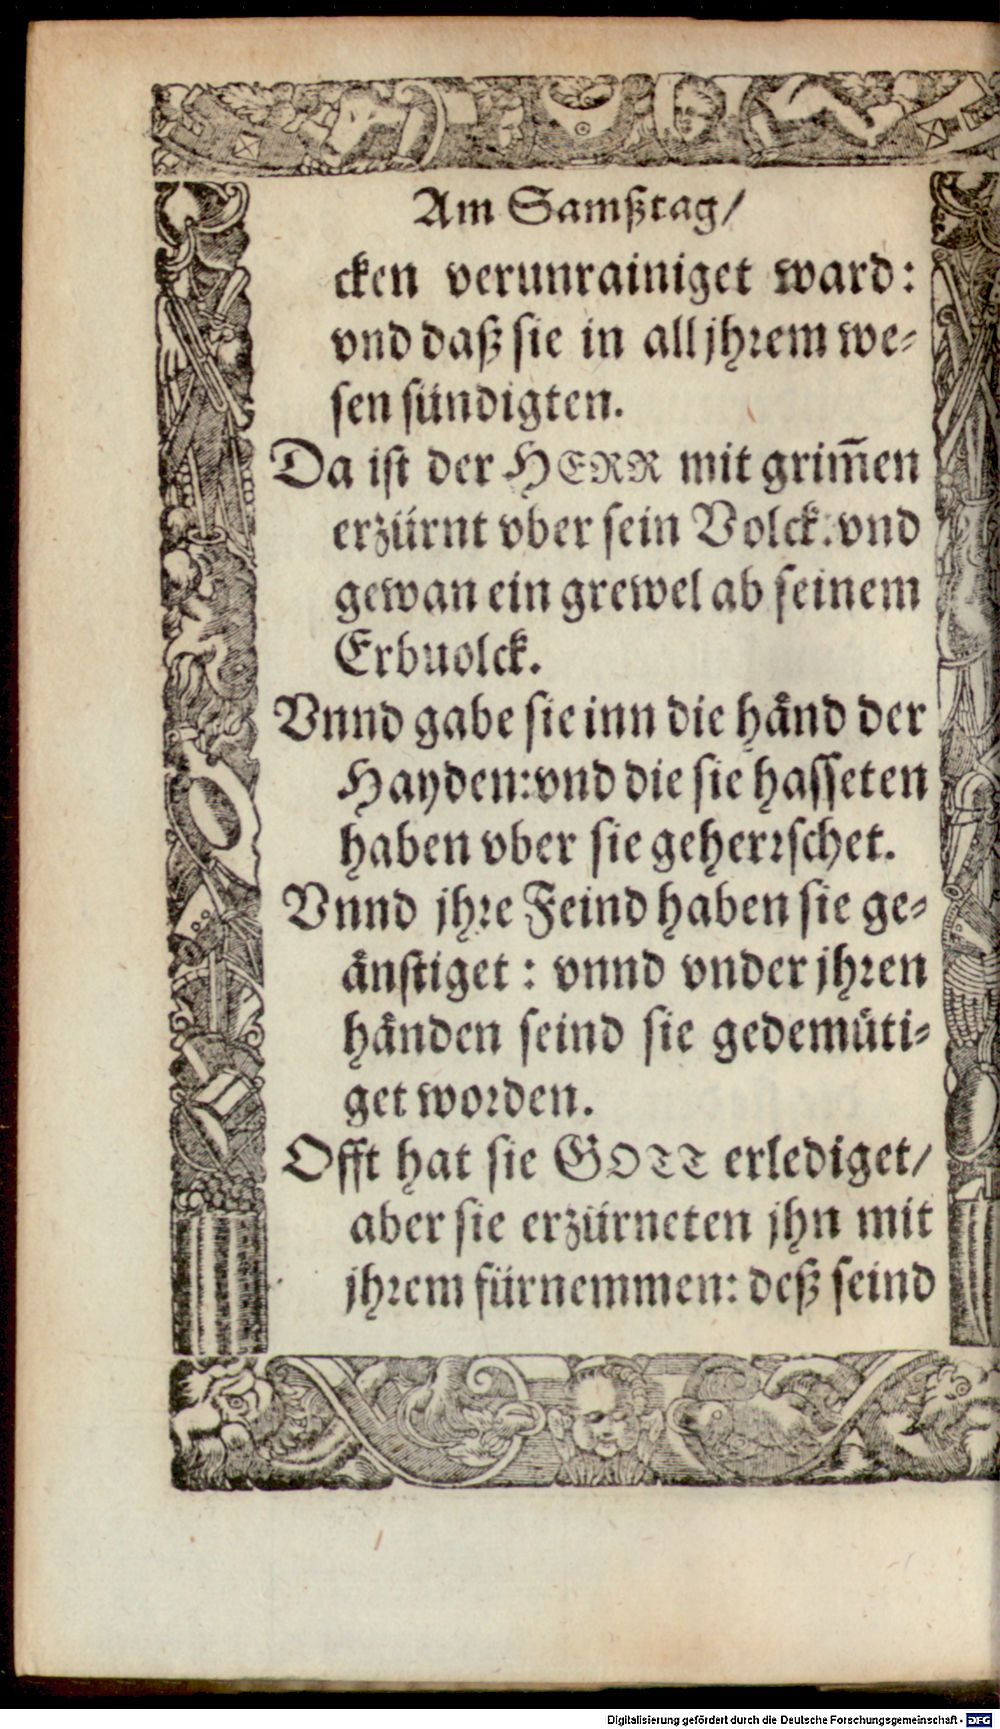 Am Samßtag/
cken verunrainiget ward:
vnd daß sie in all jhrem we-
sen sündigten.
Da ist der HERR mit grim̃en
erzürnt vber sein Volck: vnd
gewan ein grewel ab seinem
Erbuolck.
Vnnd gabe sie inn die händ der
Hayden: vnd die sie hasseten
haben vber sie geherrschet.
Vnnd jhre Feind haben sie ge-
änstiget : vnnd vnder jhren
händen seind sie gedemüti-
get worden.
Offt hat sie GOTT erlediget/
aber sie erzürneten jhn mit
jhrem fürnemmen: deß seind
Digitalisierung gefördert durch die Deutsche Forschungsgemeinschaft - DFG